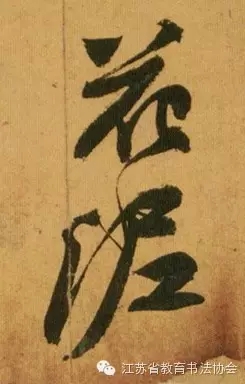 花泥
江苏省教育书法协会